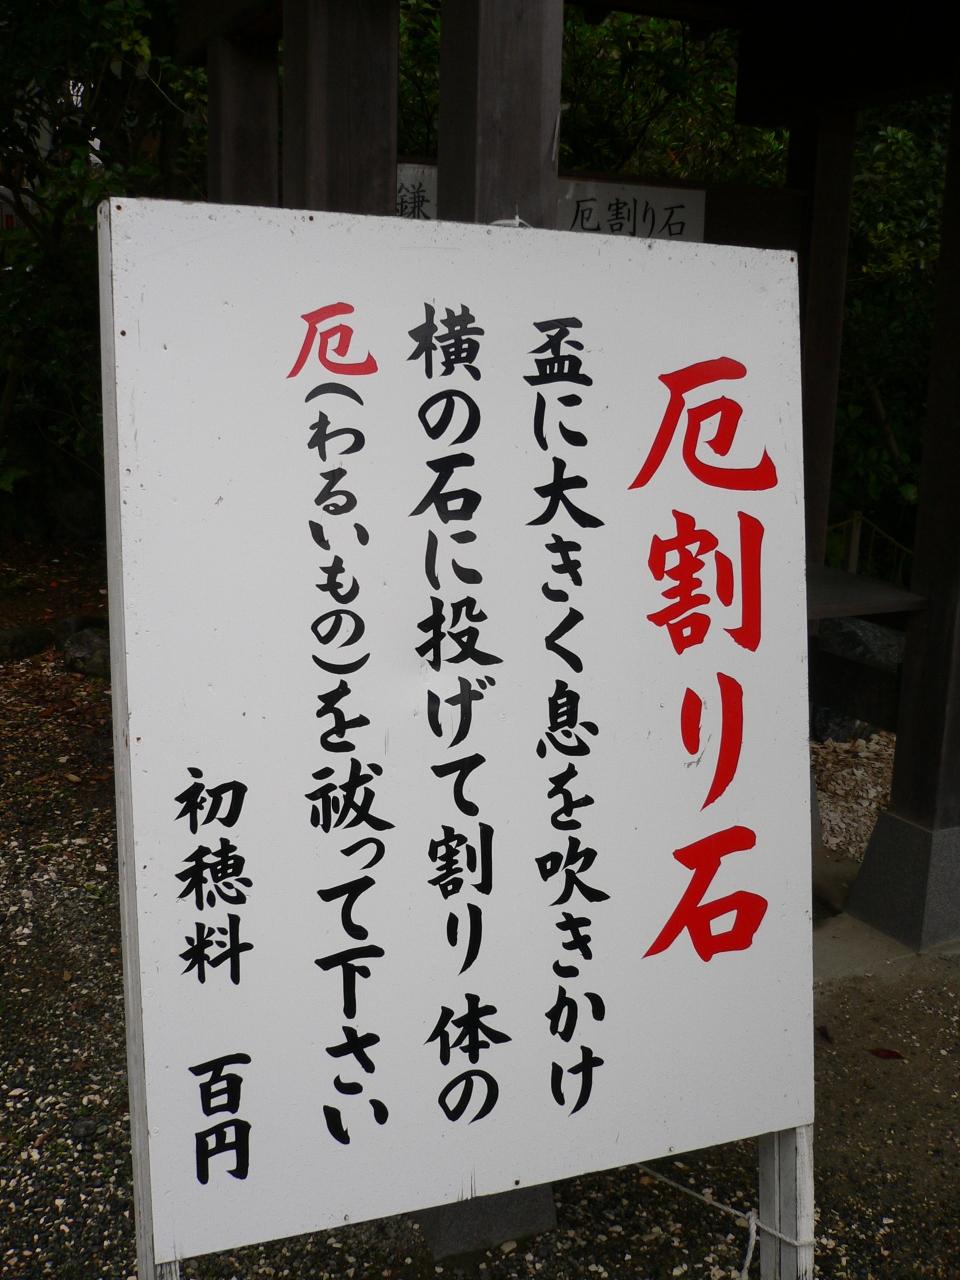 厄割り石
盃に大きく息を吹きかけ
横の石に投げて割り 体の
厄(わるいもの)を祓って下さい
初穂料 百円
厄割り石
鎌